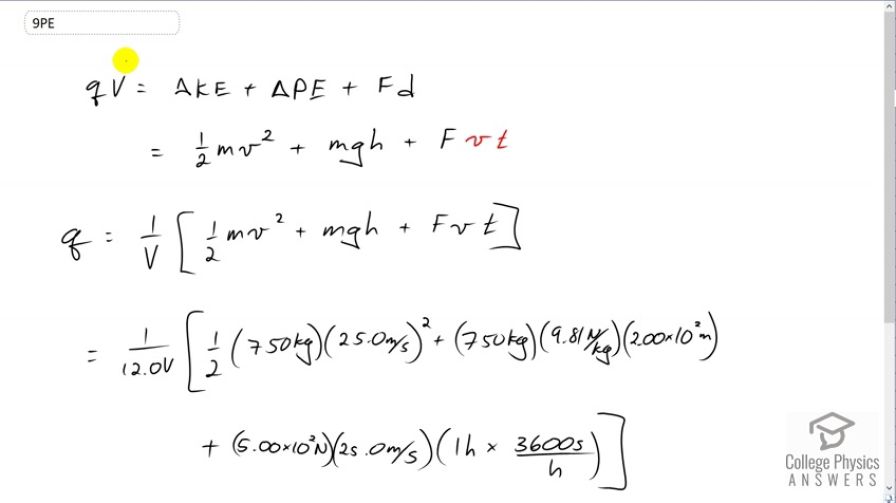 9PE
qV = ΔKE + ΔPE + Fd
= 1/2 mv² + mgh + Fvt
q = 1/V [1/2 mv² + mgh + Fvt]
= 1/12.0V [1/2 (750kg)(25.0m/s)² + (750kg)(9.81N/kg)(2.00×10²m)
+ (5.00×10²N)(25.0m/s)(1h × 3600s/h)]
College Physics
ANSWERS